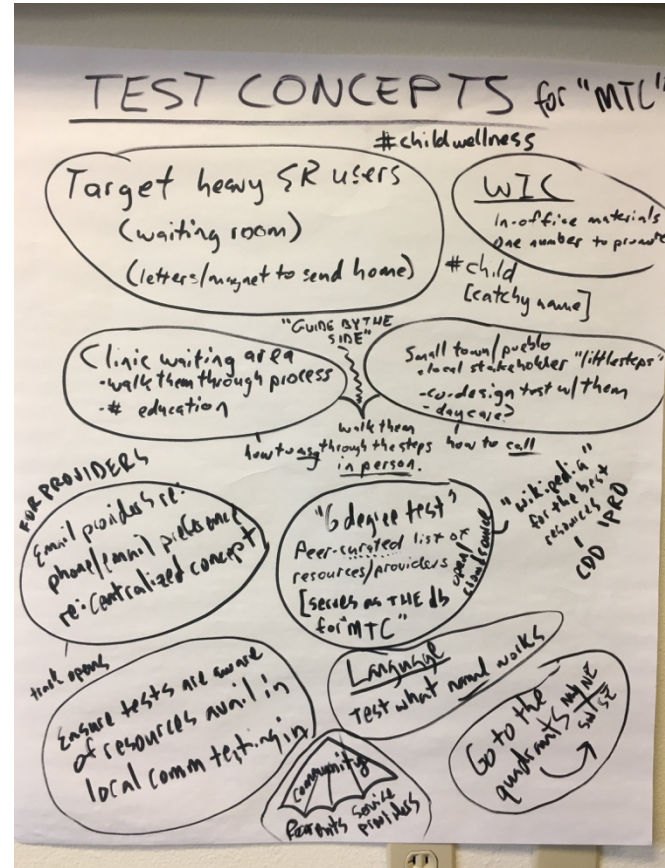 TEST CONCEPTS for "MTC"
#childwellness
Target heavy SR users
(waiting room)
(letters/magnet to send home)
WIC
In-office materials
One number to promote
#child
[catchy name]
"GUIDE BY THE
SIDE"
Clinic waiting area
-walk them through process
-# education
Small town/pueblo
-local stakeholder "littlesteps"
-co-design test w/ them
-daycare?
walk them
through the steps
in person.
how to
how to call
FOR PROVIDERS
Email providers re:
phone/email preference
re: centralized concept
track opens
"6 degree test"
Peer-curated list of
resources/providers
[serves as THE db
for "MTC"
open/
"wikipedia"
for the best
resources
CDD IPRD
Ensure tests are aware
of resources avail in
local comm testing in
Language
Test what works
Go to the
quadrants
NW NE
SW SE
community
Parents service
providers